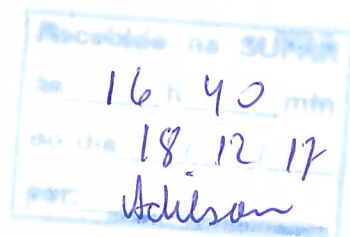 Recebido na SUPAR
às 16 h 40 min
do dia 18 12 17
por: Adilson